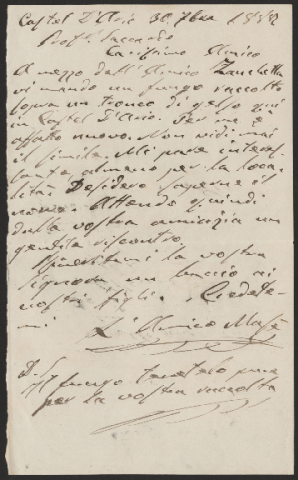 Castel D'Ario 30. 7bre
Prof. Saccardo
Carissimo Amico
A mezzo dell'Amico Zanchetta
vi mando un fungo raccolto
sopra un tronco di gelso qui
in Castel D'Ario. Per me è
affatto nuovo. Non vidi mai
il simile. Mi pare interes-
sante almeno per la loca-
lità. Desidero saperne il
nome. Attendo quindi
dalla vostra amicizia un
gentile riscontro.
Riveritemi la vostra
signora un bacio ai
vostri figli. Credete-
mi
L'Amico Masè
P.S.
Il fungo tenetelo pure
per la vostra raccolta